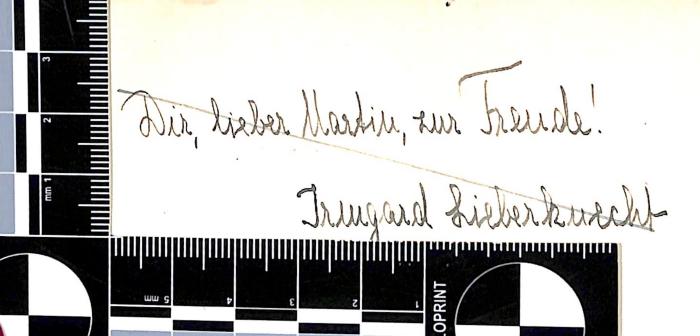 Dir, lieber Martin, zur Freude!
Irmgard Lieberknecht
3
2
mm 1
5 mm
4
3
2
1
LOPRINT